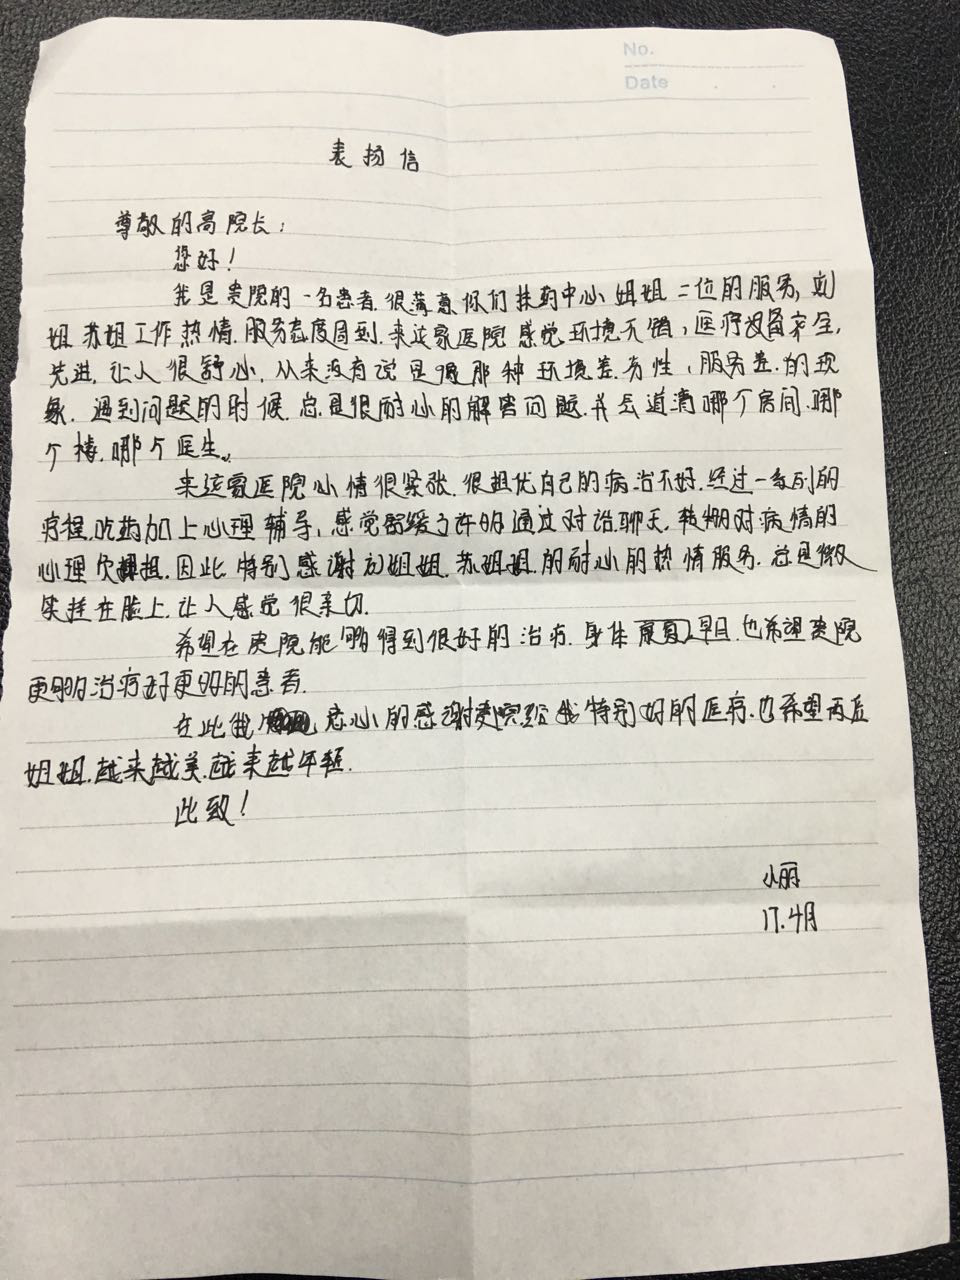 No.
Date
表扬信
尊敬的高院长:
您好!
我是贵院的一名患者.很满意你们抹药中心姐姐二位的服务,刘
姐 苏姐工作热情.服务态度周到.来这家医院感觉环境不错,医疗设备齐全,
先进.让人很舒心.从来没有说是那种环境差. 服务差.的现
象.遇到问题的时候.总是很耐心的解答问题.并去道清哪个房间.哪
个楼.哪个医生.
来这家医院心情很紧张.很担忧自己的病治不好.经过一系列的
疗程.吃药加上心理辅导,感觉舒缓了许多的通过对话.聊天. 对病情的
心理 .因此.特别感谢刘姐姐.苏姐姐的耐心的热情服务.总是微
笑挂在脸上.让人感觉很亲切.
希望在贵院能够得到很好的治疗.身体 早日.也希望贵院
更够的治疗好更多的患者.
在此我 忠心的感谢贵院给我特别好的医疗.也希望两位
姐姐.越来越美.越来越年轻.
此致!
小丽
17.4月